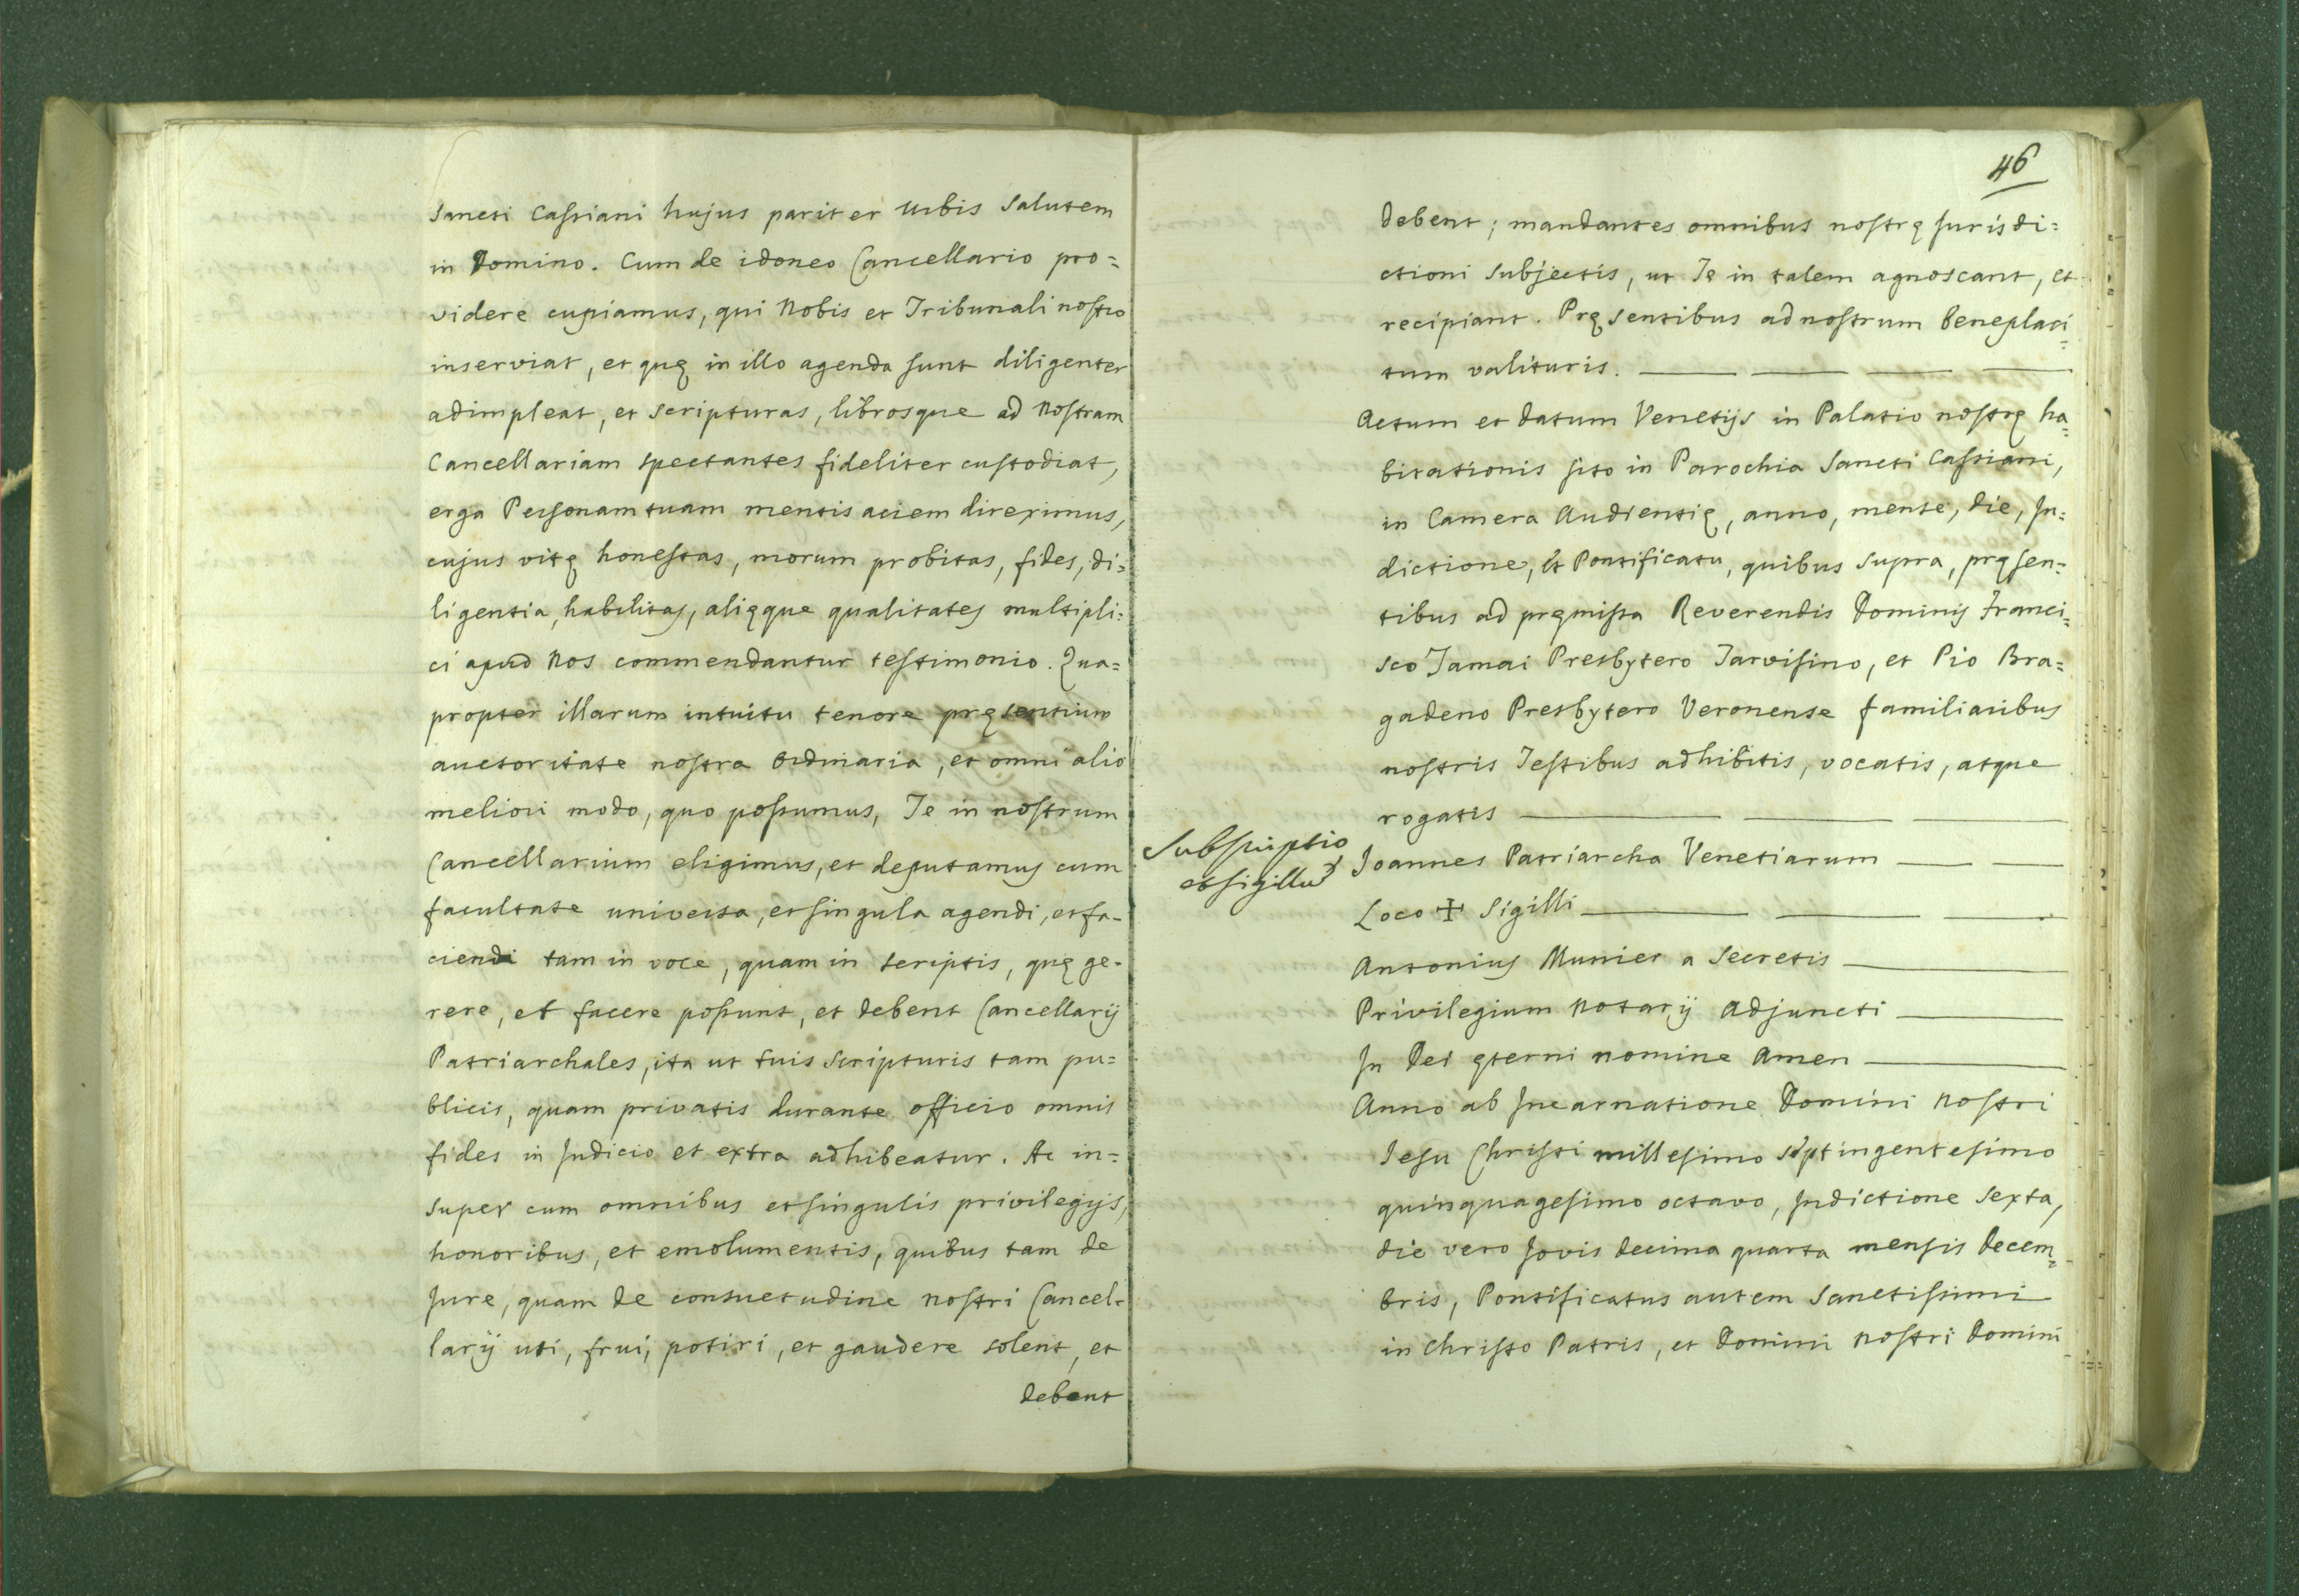 Sancti Cassiani hujus pariter Urbis Salutem
in Domino. Cum de idoneo Cancellario pro=
videre cupiamus, qui Nobis et Tribunali nostro
inserviat, et quę in illo agenda sunt diligenter
adimpleat, et scripturas, librosque ad Nostram
Cancellariam spectantes fideliter custodiat,
erga Personam tuam mentis aciem direximus,
cujus vitę honestas, morum probitas, fides, di=
ligentia, habilitas, alięque qualitates multipli=
ci apud Nos commendantur testimonio. Qua=
propter illarum intuitu tenore pręsentium
auctoritate nostra Ordinaria, et omni alio
meliori modo, quo possumus, Te in nostrum
Cancellarium eligimus, et deputamus cum
facultate universa, et singula agendi, et fa-
ciendi tam in voce, quam in scriptis, quę ge-
rere, et facere possunt, et debent Cancellarij
Patriarchales, ita ut tuis scripturis tam pu=
blicis, quam privatis durante officio omnis
fides in Judicio et extra adhibeatur. Ac in=
super cum omnibus et singulis privilegijs,
honoribus, et emolumentis, quibus tam de
Jure, quam de consuetudine nostri Cancel=
larij uti, frui, potiri, et gaudere solent, et
debent
46
debent; mandantes omnibus nostrę Jurisdi=
ctioni subjectis, ut Te in talem agnoscant, et
recipiant. Pręsentibus ad nostrum beneplaci=
tum valituris.
Actum et datum Venetijs in Palatio nostrę ha=
bitationis sito in Parochia Sancti Cassiani,
in Camera Audientię, anno, mense, die, In=
dictione, et Pontificatu, quibus supra, pręsen=
tibus ad pręmissa Reverendis Dominis Franci=
sco Tamai Presbytero Tarvisino, et Pio Bra=
gadeno Presbytero Veronense familiaribus
nostris Testibus adhibitis, vocatis, atque
rogatis
Subscriptio
et sigillu
Joannes Patriarcha Venetiarum
Loco ✠ Sigilli
Antonius Munier a Secretis
Privilegium Notarij Adjuncti
In Dei ęterni nomine Amen
Anno ab Incarnatione Domini Nostri
Jesu Christi millesimo septingentesimo
quinquagesimo octavo, Indictione Sexta,
die vero Jovis decima quarta mensis Decem=
bris, Pontificatus autem Sanctissimi
in Christo Patris, et Domini Nostri Domini